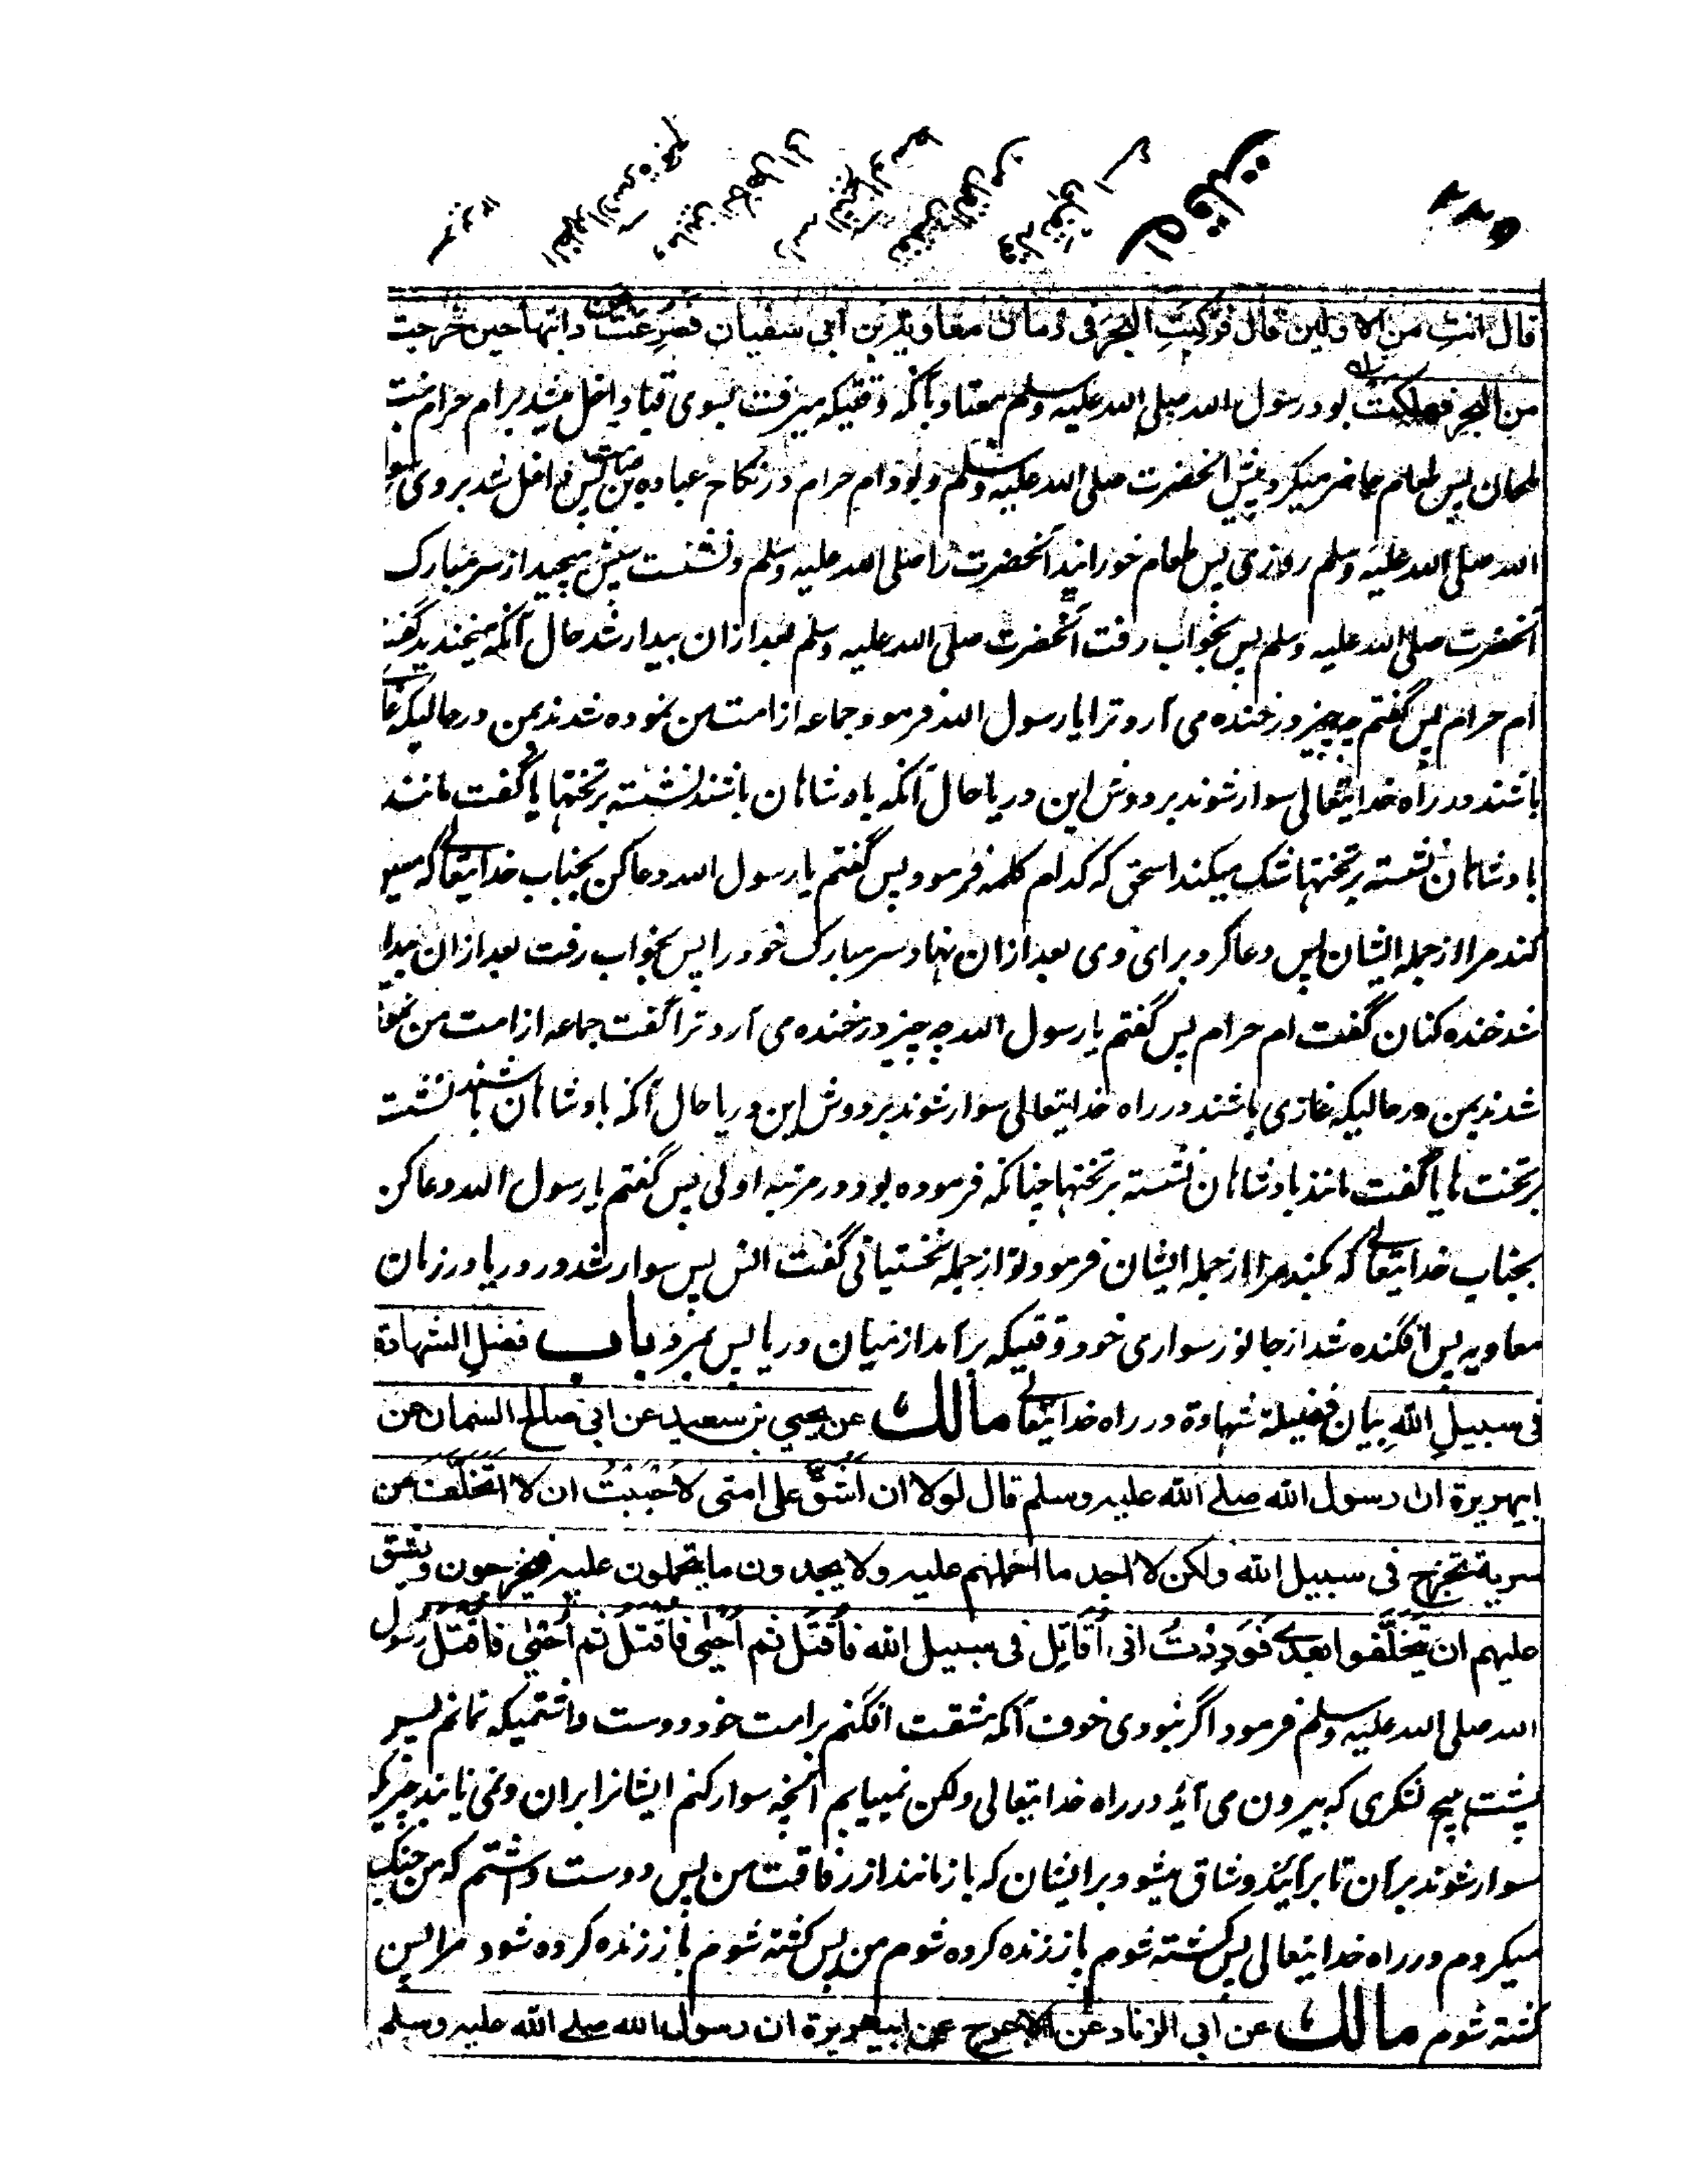 ۲۲۹
قال انتِ من الاولین قال فرکبتِ البحرَ فی زمان معاویة بن ابی سفیان فصُرِعَت عن دابتها حین خرجت
من البحر فهلکتْ بود رسول الله صلی الله علیه وسلم معتاد بآنکه وقتیکه میرفت بسوی قبا داخل میشد برام حرام بنت
ملحان پس طعام حاضر میکرد پیش آنحضرت صلی الله علیه وسلم و بود ام حرام در نکاح عباده بن صامت پس داخل شد بر وی رسول
الله صلی الله علیه وسلم روزی پس طعام خورانید آنحضرت را صلی الله علیه وسلم و نشست سپش میچید از سر مبارک
آنحضرت صلی الله علیه وسلم پس بخواب رفت آنحضرت صلی الله علیه وسلم بعد ازان بیدار شد حال آنکه میخندید گفت
ام حرام پس گفتم چه چیز در خنده می آرد ترا یا رسول الله فرمود جماعه از امت من نموده شدند بمن در حالیکه غازی
باشند در راه خدایتعالی سوار شوند بر دوش این دریا حال آنکه بادشاهان باشند نشسته بر تختها یا گفت مانند
بادشاهان نشسته بر تختها شک میکند اسحق که کدام کلمه فرمود پس گفتم یا رسول الله دعا کن بجناب خدایتعالی که
کند مرا از جمله ایشان پس دعا کرد برای وی بعد ازان نهاد سر مبارک خود را پس بخواب رفت بعد ازان بیدار
شد خنده کنان گفت ام حرام پس گفتم یا رسول الله چه چیز در خنده می آرد ترا گفت جماعه از امت من نموده
شدند بمن در حالیکه غازی باشند در راه خدایتعالی سوار شوند بر دوش این دریا حال آنکه بادشاهان باشند نشسته
بر تخت ها یا گفت مانند بادشاهان نشسته بر تختها چنانکه فرموده بود در مرتبه اولی پس گفتم یا رسول الله دعا کن
بجناب خدایتعالی که بکند مرا از جمله ایشان فرمود تو از جمله نخستیانی گفت انس پس سوار شد در دریا در زمان
معاویه پس افگنده شد از جانور سواری خود وقتیکه برآمد از میان دریا پس بمرد باب فضلِ الشهادة
فی سبیلِ اللهِ بیان فضیلة شهادة در راه خدایتعالی مالک عن یحیی بن سعید عن ابی صالح السمان عن
ابیهریرة ان رسول الله صلے الله علیه وسلم قال لولا ان اشُقَّ علی امتی لاَحْبَبْتُ ان لا اتخَلَّفَ عن
سریة تخرج فی سبیل الله ولکن لا اجد ما احملهم علیه ولا یجدون ما یتحملون علیه فیخرجون ویشق
علیهم ان یتخَلَّفوا بعدی فَوَدِدْتُ انی اُقَاتِل فی سبیل الله فاُقتَل ثم اُحیٰی فاُقتَلُ ثم اُحیٰی فاُقتَلُ رسول
الله صلی الله علیه وسلم فرمود اگر نبودی خوف آنکه مشقت افگنم بر امت خود دوست داشتمیکه نمانم پس
پشت هیچ لشکری که بیرون می آید در راه خدایتعالی ولکن نمییابم آنچه سوار کنم ایشانرا بران ونمی یابند چیزیکه
سوار شوند برآن تا برآیند وشاق میشود بر ایشان که باز مانند از رفاقت من پس دوست داشتم که من جنگ
میکردم در راه خدایتعالی پس کشته شوم باز زنده کرده شوم من پس کشته شوم باز زنده کرده شود مرا پس
کشته شوم مالک عن ابی الزناد عن الاعرج عن ابیهریرة ان رسول الله صلے الله علیه وسلم